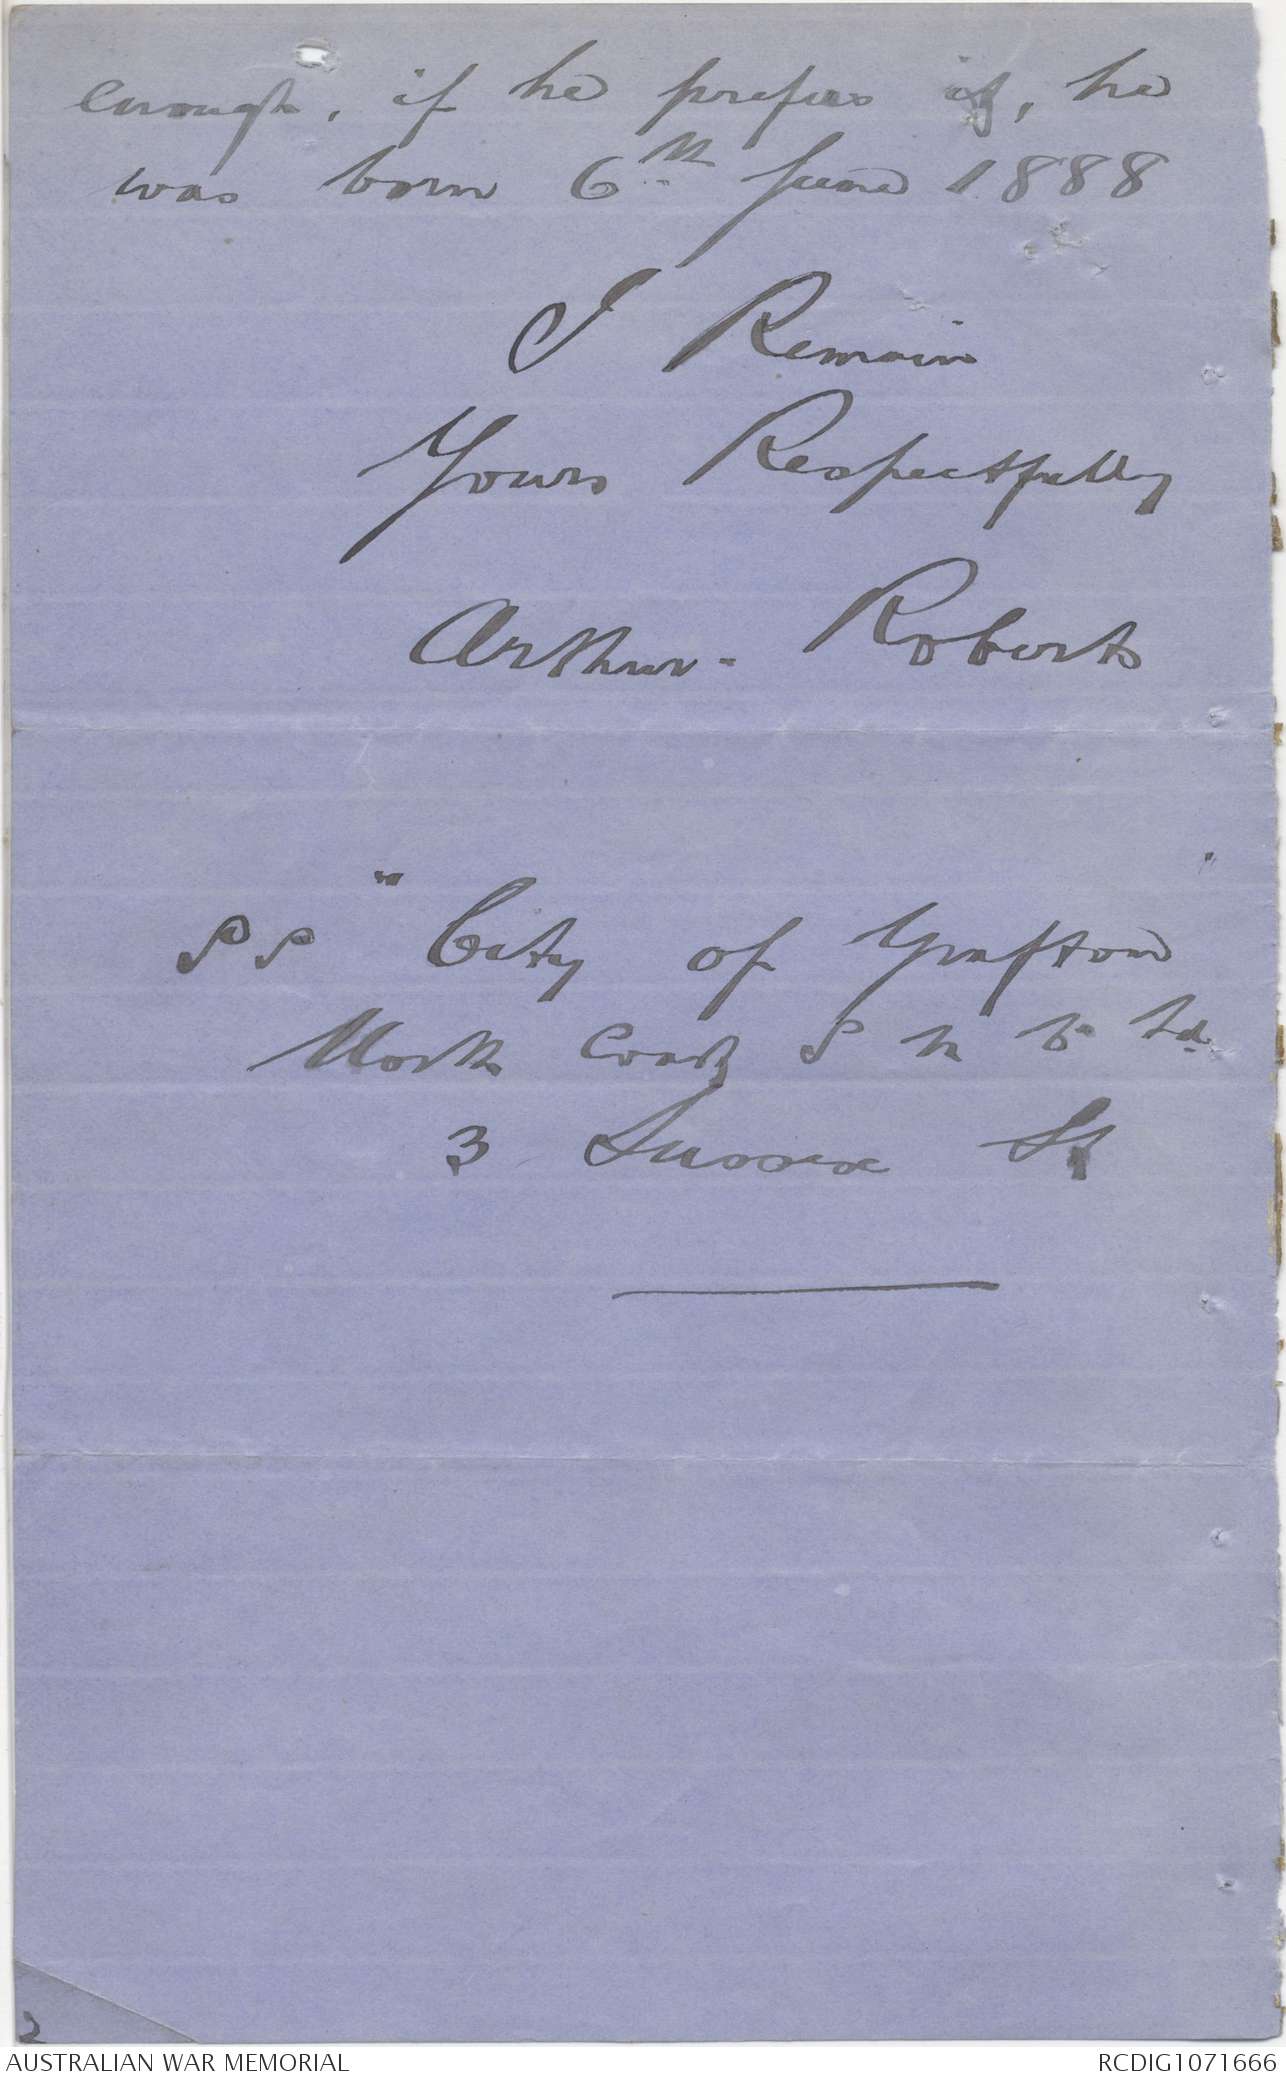 enough, if he prefers it, he
was born 6th June 1888
I Remain
Yours Respectfully
Arthur. Roberts
SS "City of Grafton"
North Coast S N Co Ld.
3 Sussex St
2
AUSTRALIAN WAR MEMORIAL
RCDIG1071666